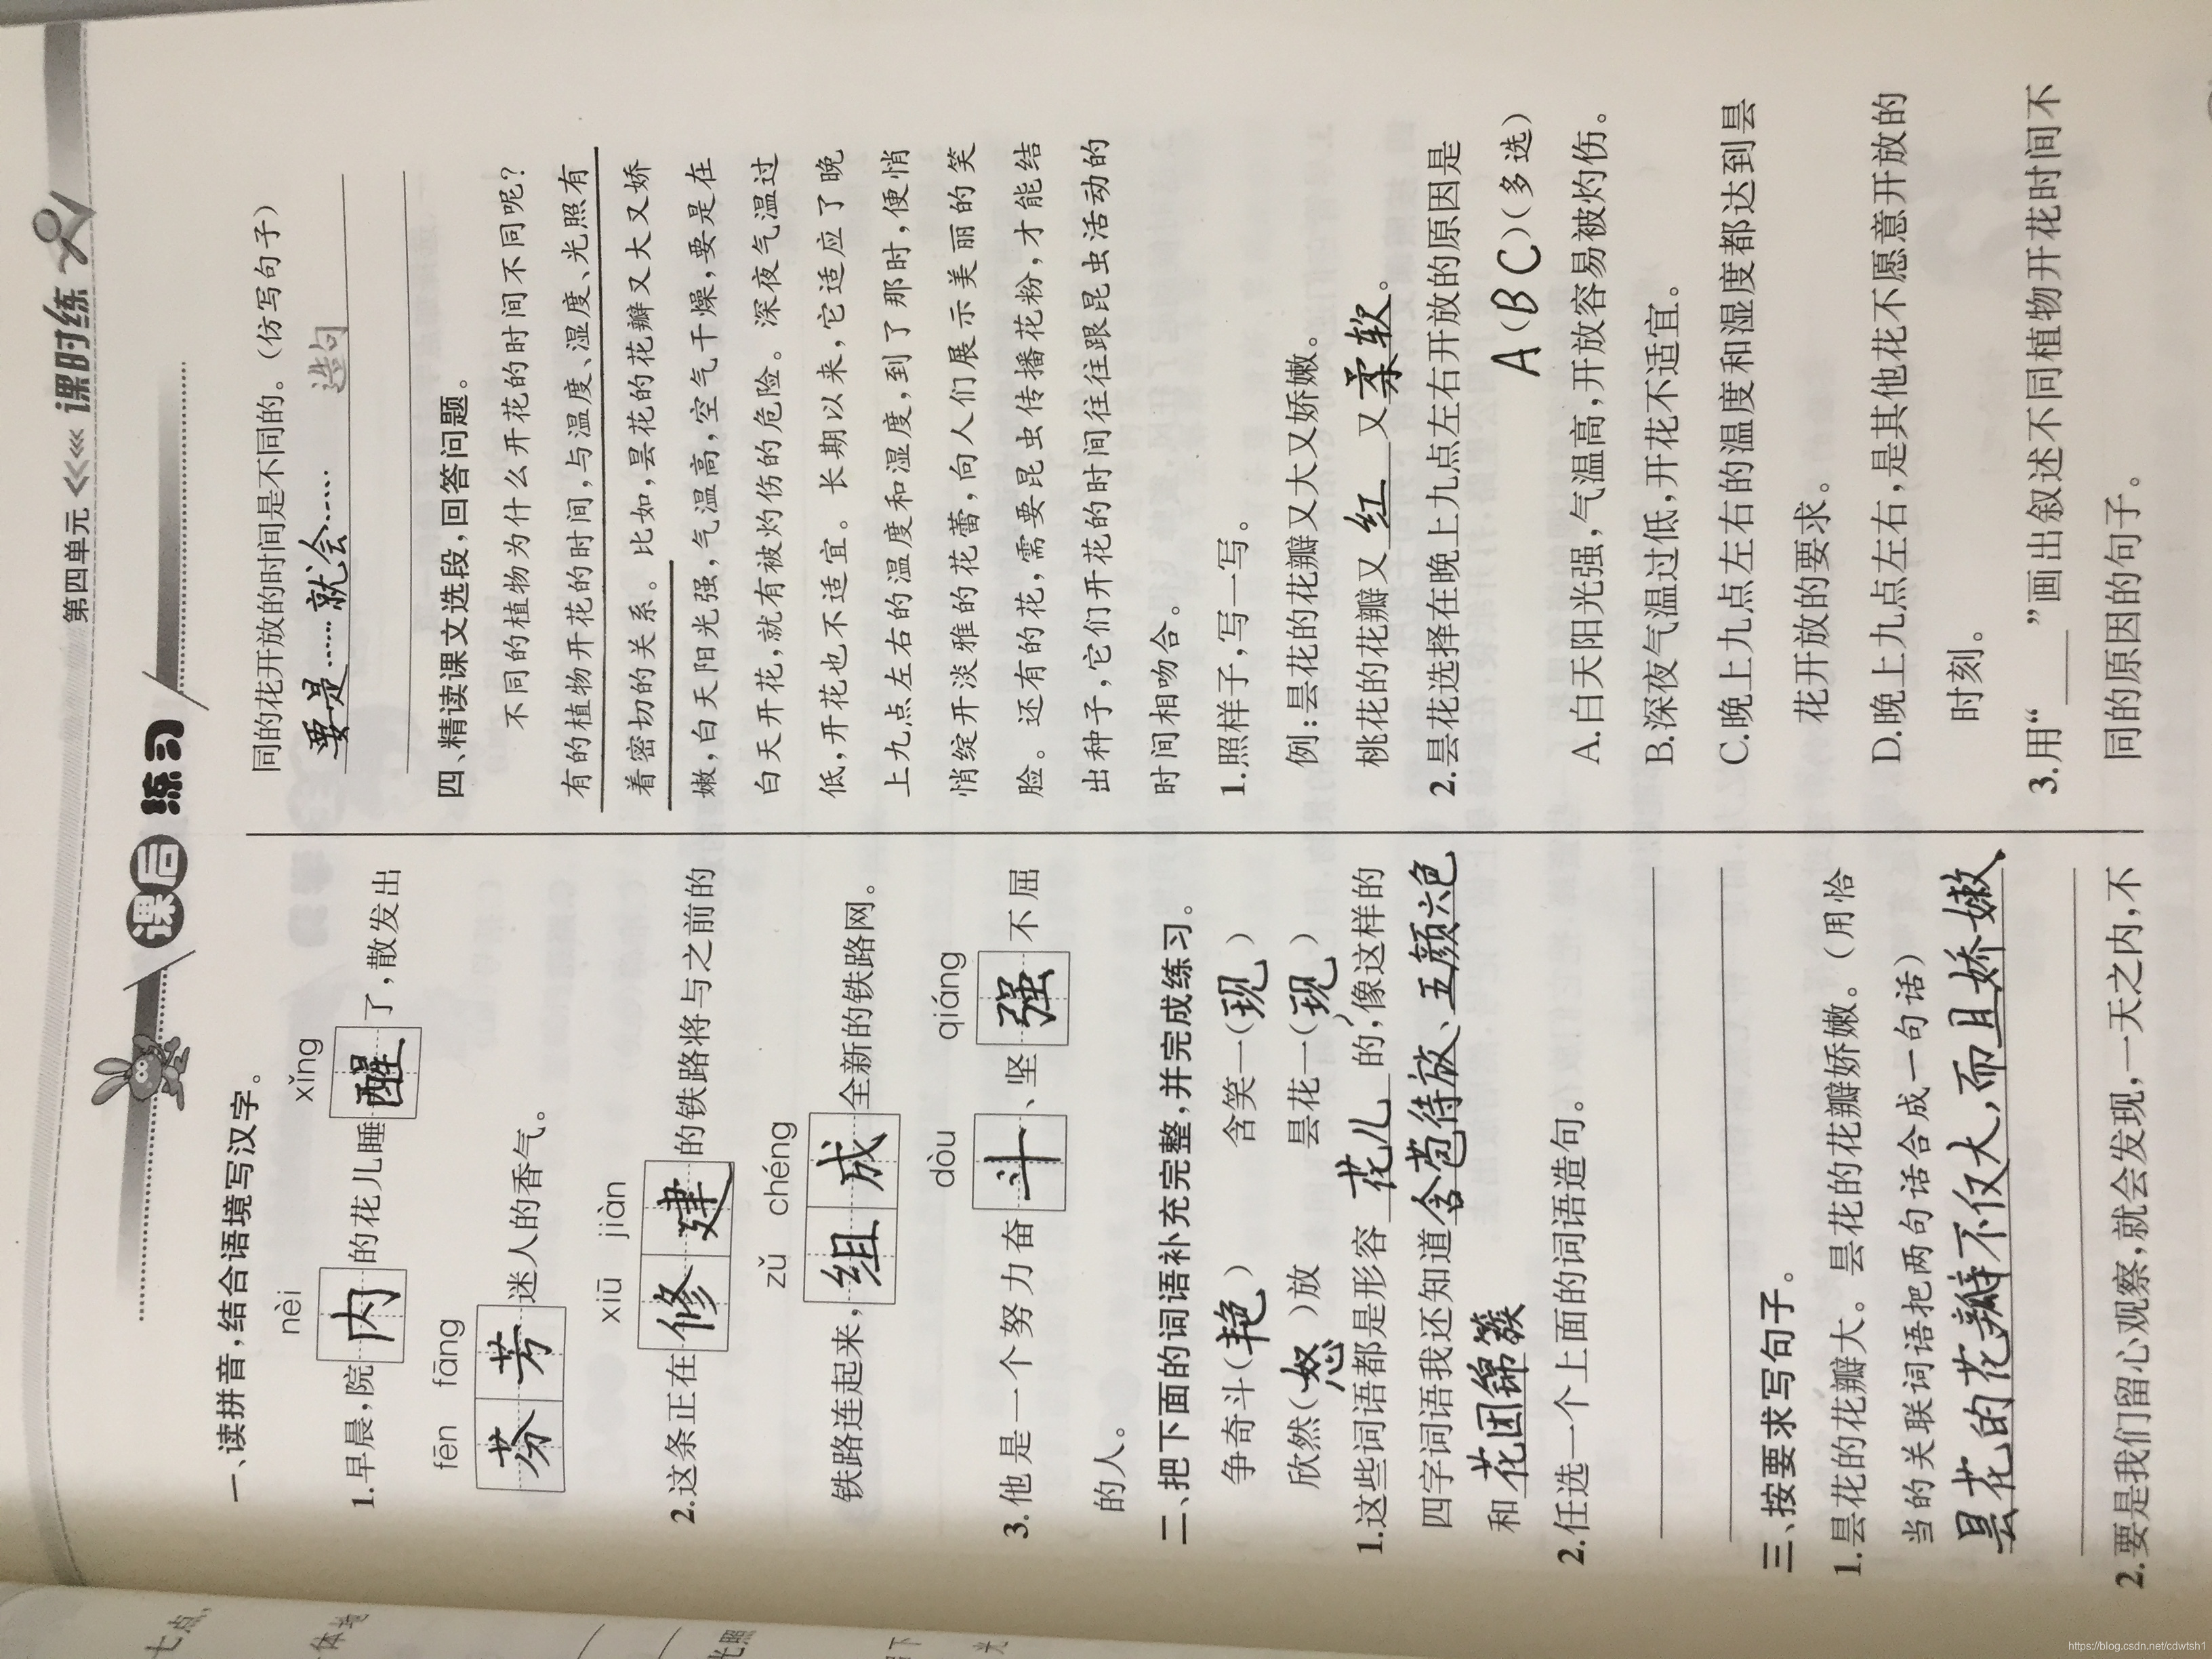 第四单元 课时练
课后练习
一、读拼音，结合语境写汉字。
nèi xǐng
1.早晨，院内的花儿睡醒了，散发出
fēn fāng
芬芳迷人的香气。
xiū jiàn
2.这条正在修建的铁路将与之前的
zǔ chéng
铁路连起来，组成全新的铁路网。
dòu qiáng
3.他是一个努力奋斗、坚强不屈
的人。
二、把下面的词语补充完整，并完成练习。
争奇斗（艳） 含笑一（现）
欣然（怒）放 昙花一（现）
1.这些词语都是形容花儿的，像这样的
四字词语我还知道含苞待放、五颜六色
和花团锦簇
2.任选一个上面的词语造句。
三、按要求写句子。
1.昙花的花瓣大。昙花的花瓣娇嫩。（用恰
当的关联词语把两句话合成一句话）
昙花的花瓣不仅大，而且娇嫩
2.要是我们留心观察，就会发现，一天之内，不
同的花开放的时间是不同的。（仿写句子）
要是……就会…… 造句
四、精读课文选段，回答问题。
不同的植物为什么开花的时间不同呢？
有的植物开花的时间，与温度、湿度、光照有
着密切的关系。比如，昙花的花瓣又大又娇
嫩，白天阳光强，气温高，空气干燥，要是在
白天开花，就有被灼伤的危险。深夜气温过
低，开花也不适宜。长期以来，它适应了晚
上九点左右的温度和湿度，到了那时，便悄
悄绽开淡雅的花蕾，向人们展示美丽的笑
脸。还有的花，需要昆虫传播花粉，才能结
出种子，它们开花的时间往往跟昆虫活动的
时间相吻合。
1.照样子，写一写。
例：昙花的花瓣又大又娇嫩。
桃花的花瓣又红又柔软。
2.昙花选择在晚上九点左右开放的原因是
A（BC）（多选）
A.白天阳光强，气温高，开放容易被灼伤。
B.深夜气温过低，开花不适宜。
C.晚上九点左右的温度和湿度都达到昙
花开放的要求。
D.晚上九点左右，是其他花不愿意开放的
时刻。
3.用“____”画出叙述不同植物开花时间不
同的原因的句子。
七点，
一体地
光照
https://blog.csdn.net/cdwtsh1